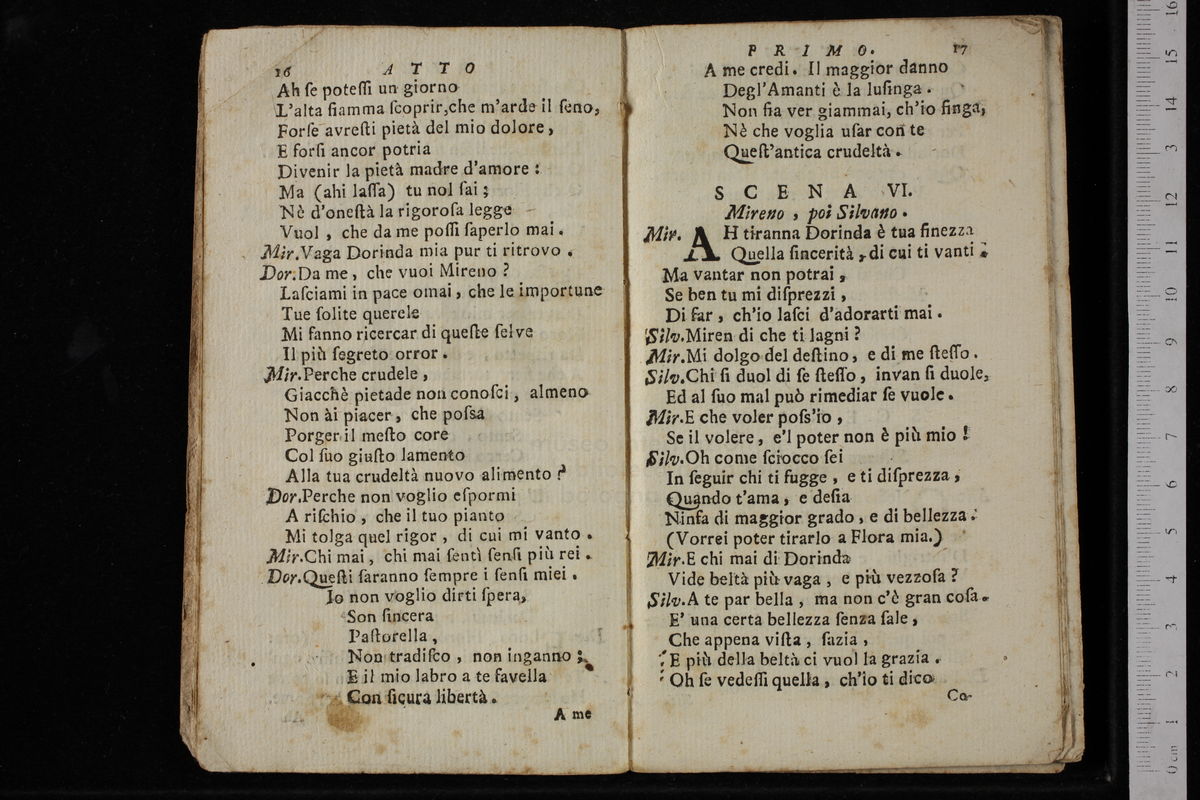 16 ATTO
Ah ſe poteſſi un giorno
L'alta fiamma ſcoprir, che m'arde il ſeno,
Forſe avreſti pietà del mio dolore,
E forſi ancor potria
Divenir la pietà madre d'amore:
Ma (ahi laſſa) tu nol ſai;
Nè d'oneſtà la rigoroſa legge
Vuol, che da me poſſi ſaperlo mai.
Mir. Vaga Dorinda mia pur ti ritrovo.
Dor. Da me, che vuoi Mireno?
Laſciami in pace omai, che le importune
Tue ſolite querele
Mi fanno ricercar di queſte ſelve
Il più ſegreto orror.
Mir. Perche crudele,
Giacchè pietade non conoſci, almeno
Non ài piacer, che poſsa
Porger il meſto core
Col ſuo giuſto lamento
Alla tua crudeltà nuovo alimento?
Dor. Perche non voglio eſpormi
A riſchio, che il tuo pianto
Mi tolga quel rigor, di cui mi vanto.
Mir. Chi mai, chi mai ſentì ſenſi più rei.
Dor. Queſti ſaranno ſempre i ſenſi miei.
Io non voglio dirti ſpera,
Son ſincera
Paſtorella,
Non tradiſco, non inganno;
E il mio labro a te favella
Con ſicura libertà.
A me
PRIMO. 17
A me credi. Il maggior danno
Degl'Amanti è la luſinga.
Non fia ver giammai, ch'io finga,
Nè che voglia uſar con te
Queſt'antica crudeltà.
SCENA VI.
Mireno, poi Silvano.
Mir. AH tiranna Dorinda è tua finezza
Quella ſincerità, di cui ti vanti.
Ma vantar non potrai,
Se ben tu mi diſprezzi,
Di far, ch'io laſci d'adorarti mai.
Silv. Miren di che ti lagni?
Mir. Mi dolgo del deſtino, e di me ſteſſo.
Silv. Chi ſi duol di ſe ſteſſo, invan ſi duole,
Ed al ſuo mal può rimediar ſe vuole.
Mir. E che voler poſs'io,
Se il volere, e'l poter non è più mio!
Silv. Oh come ſciocco ſei
In ſeguir chi ti fugge, e ti diſprezza,
Quando t'ama, e deſia
Ninfa di maggior grado, e di bellezza.
(Vorrei poter tirarlo a Flora mia.)
Mir. E chi mai di Dorinda
Vide beltà più vaga, e più vezzoſa?
Silv. A te par bella, ma non c'è gran coſa.
E' una certa bellezza ſenza ſale,
Che appena viſta, ſazia,
E più della beltà ci vuol la grazia.
Oh ſe vedeſſi quella, ch'io ti dico
Co-